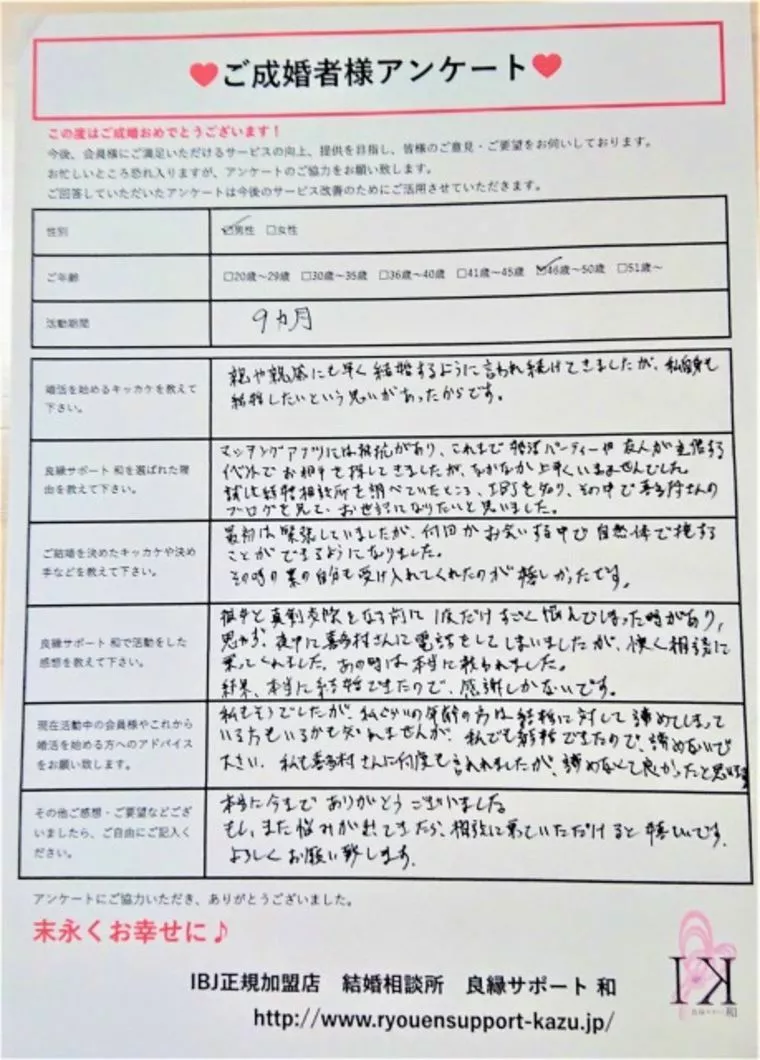 ♥ご成婚者様アンケート♥
この度はご成婚おめでとうございます！
今後、会員様にご満足いただけるサービスの向上、提供を目指し、皆様のご意見・ご要望をお伺いしております。
お忙しいところ恐れ入りますが、アンケートのご協力をお願い致します。
ご回答していただいたアンケートは今後のサービス改善のためにご活用させていただきます。
性別
☑男性 □女性
ご年齢
□20歳～29歳 □30歳～35歳 □36歳～40歳 □41歳～45歳 ☑46歳～50歳 □51歳～
活動期間
9カ月
婚活を始めるキッカケを教えて
下さい。
親や親戚にも早く結婚するように言われ続けてきましたが、私自身も
結婚したいという思いがあったからです。
良縁サポート 和を選ばれた理
由を教えて下さい。
マッチングアプリには抵抗があり、これまで婚活パーティーや友人が主催する
お相手を探してきましたが、なかなか上手くいきませんでした。
結婚相談所を調べていたところ、IBJを知り、その中で喜多村さんの
ブログを見て、お世話になりたいと思いました。
ご結婚を決めたキッカケや決め
手などを教えて下さい。
最初は緊張していましたが、何回かお会いする中で自然体で接する
ことができるようになりました。
その時の素の自分も受け入れてくれたのが嬉しかったです。
良縁サポート 和で活動をした
感想を教えて下さい。
相手と真剣交際となる前に1度だけすごく悩んでしまった時があり、
思わず、夜中に喜多村さんに電話をしてしまいましたが、快く相談に
乗ってくれました。あの時は本当に救われました。
結果、本当に結婚できたので、感謝しかないです。
現在活動中の会員様やこれから
婚活を始める方へのアドバイス
をお願い致します。
私もそうでしたが、私ぐらいの年齢の方は結婚に対して諦めてしまって
いる方もいるかも知れませんが、私でも結婚できたので、諦めないで
下さい。私も喜多村さんに何度も言われましたが、諦めなくて良かったと思います
その他ご感想・ご要望などござ
いましたら、ご自由にご記入く
ださい。
本当に今までありがとうございました。
もし、また悩みが出てきたら、相談に乗っていただけると嬉しいです。
よろしくお願い致します。
アンケートにご協力いただき、ありがとうございました。
末永くお幸せに♪
IBJ正規加盟店 結婚相談所 良縁サポート 和
http://www.ryouensupport-kazu.jp/
和